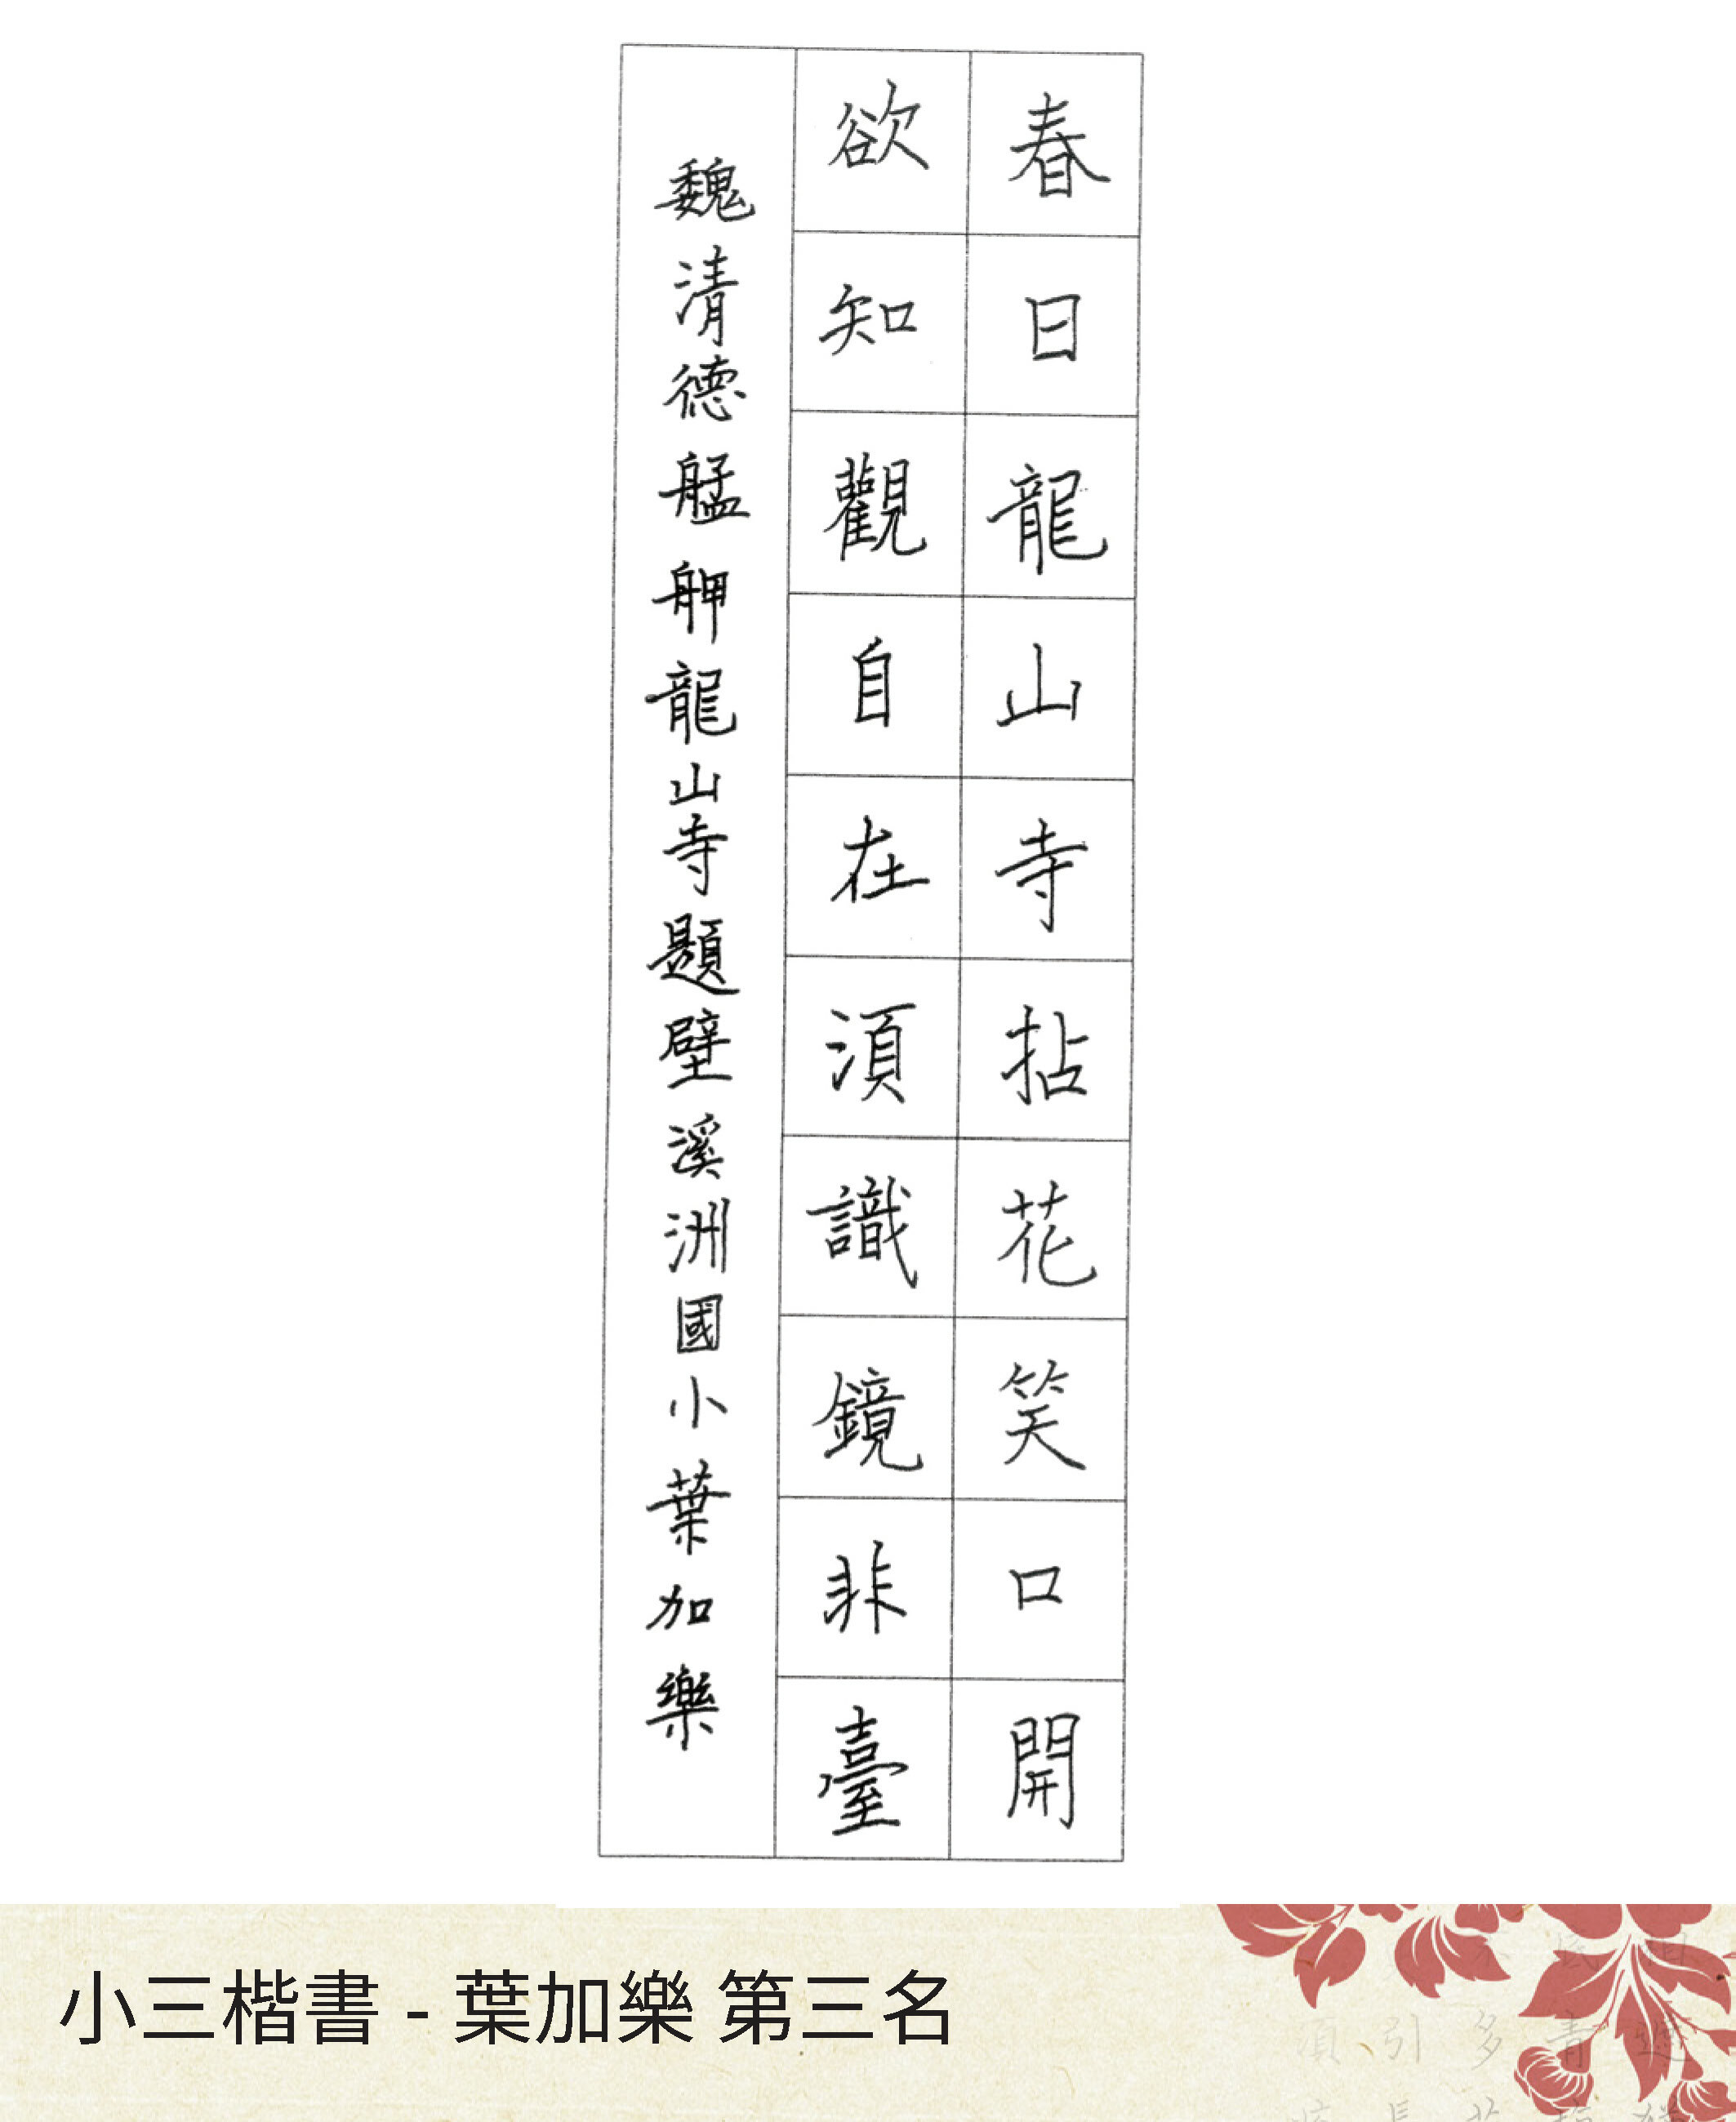 春日龍山寺拈花笑口開
欲知觀自在須識鏡非臺
魏清德艋舺龍山寺題壁溪洲國小葉加樂
小三楷書 - 葉加樂 第三名